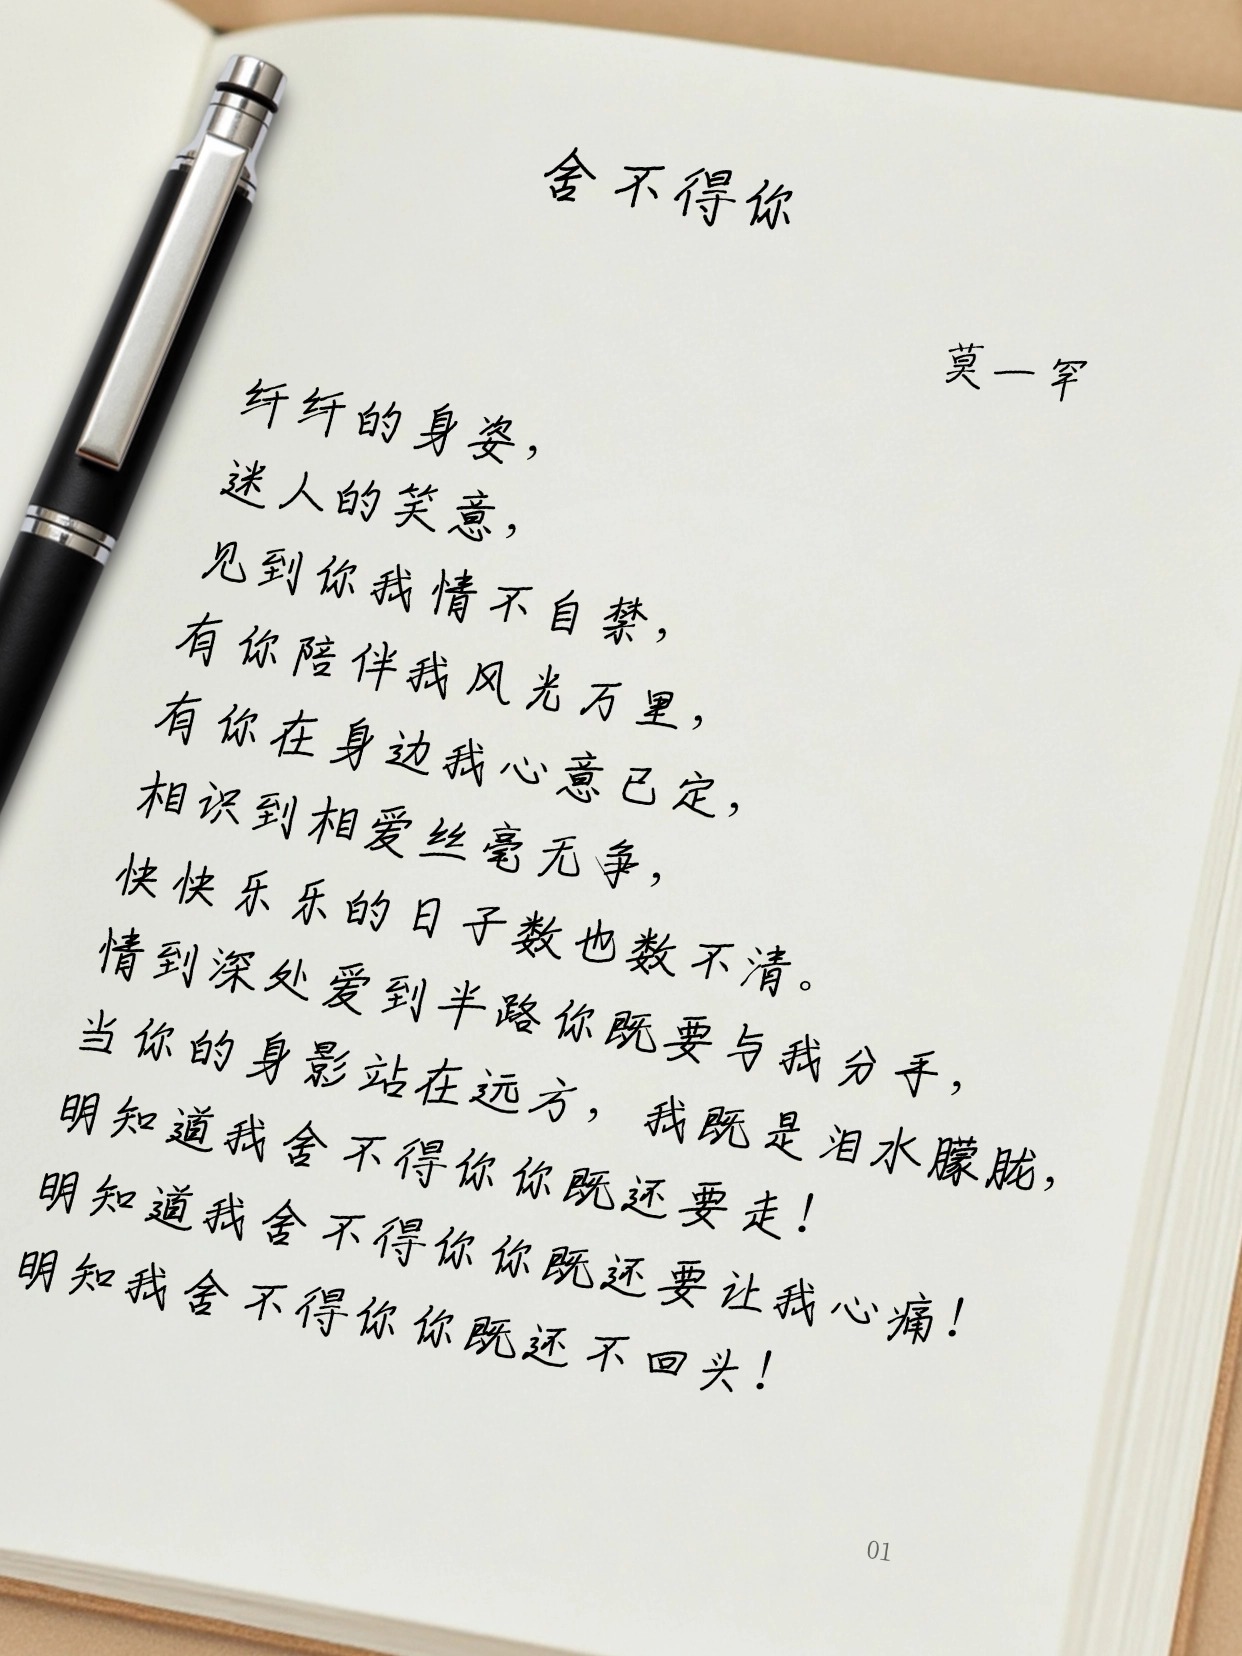 舍不得你
莫一罕
纤纤的身姿，
迷人的笑意，
见到你我情不自禁，
有你陪伴我风光万里，
有你在身边我心意已定，
相识到相爱丝毫无争，
快快乐乐的日子数也数不清。
情到深处爱到半路你既要与我分手，
当你的身影站在远方，我既是泪水朦胧，
明知道我舍不得你你既还要走！
明知道我舍不得你你既还要让我心痛！
明知我舍不得你你既还不回头！
01